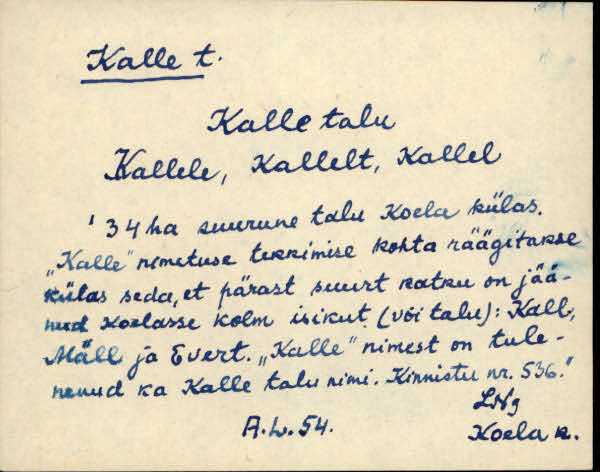 Kalle t.
Kalle talu
Kallele, Kallelt, Kallel
' 34 ha suurune talu Koela külas.
„Kalle" nimetuse tekkimise kohta räägitakse
külas seda, et pärast suurt katku on jää-
nud Koelasse kolm isikut (või talu): Kall,
Mäll ja Evert. „Kalle" nimest on tule-
nenud ka Kalle talu nimi. Kinnistu nr. 536."
LNg
A.L. 54.
Koela k.